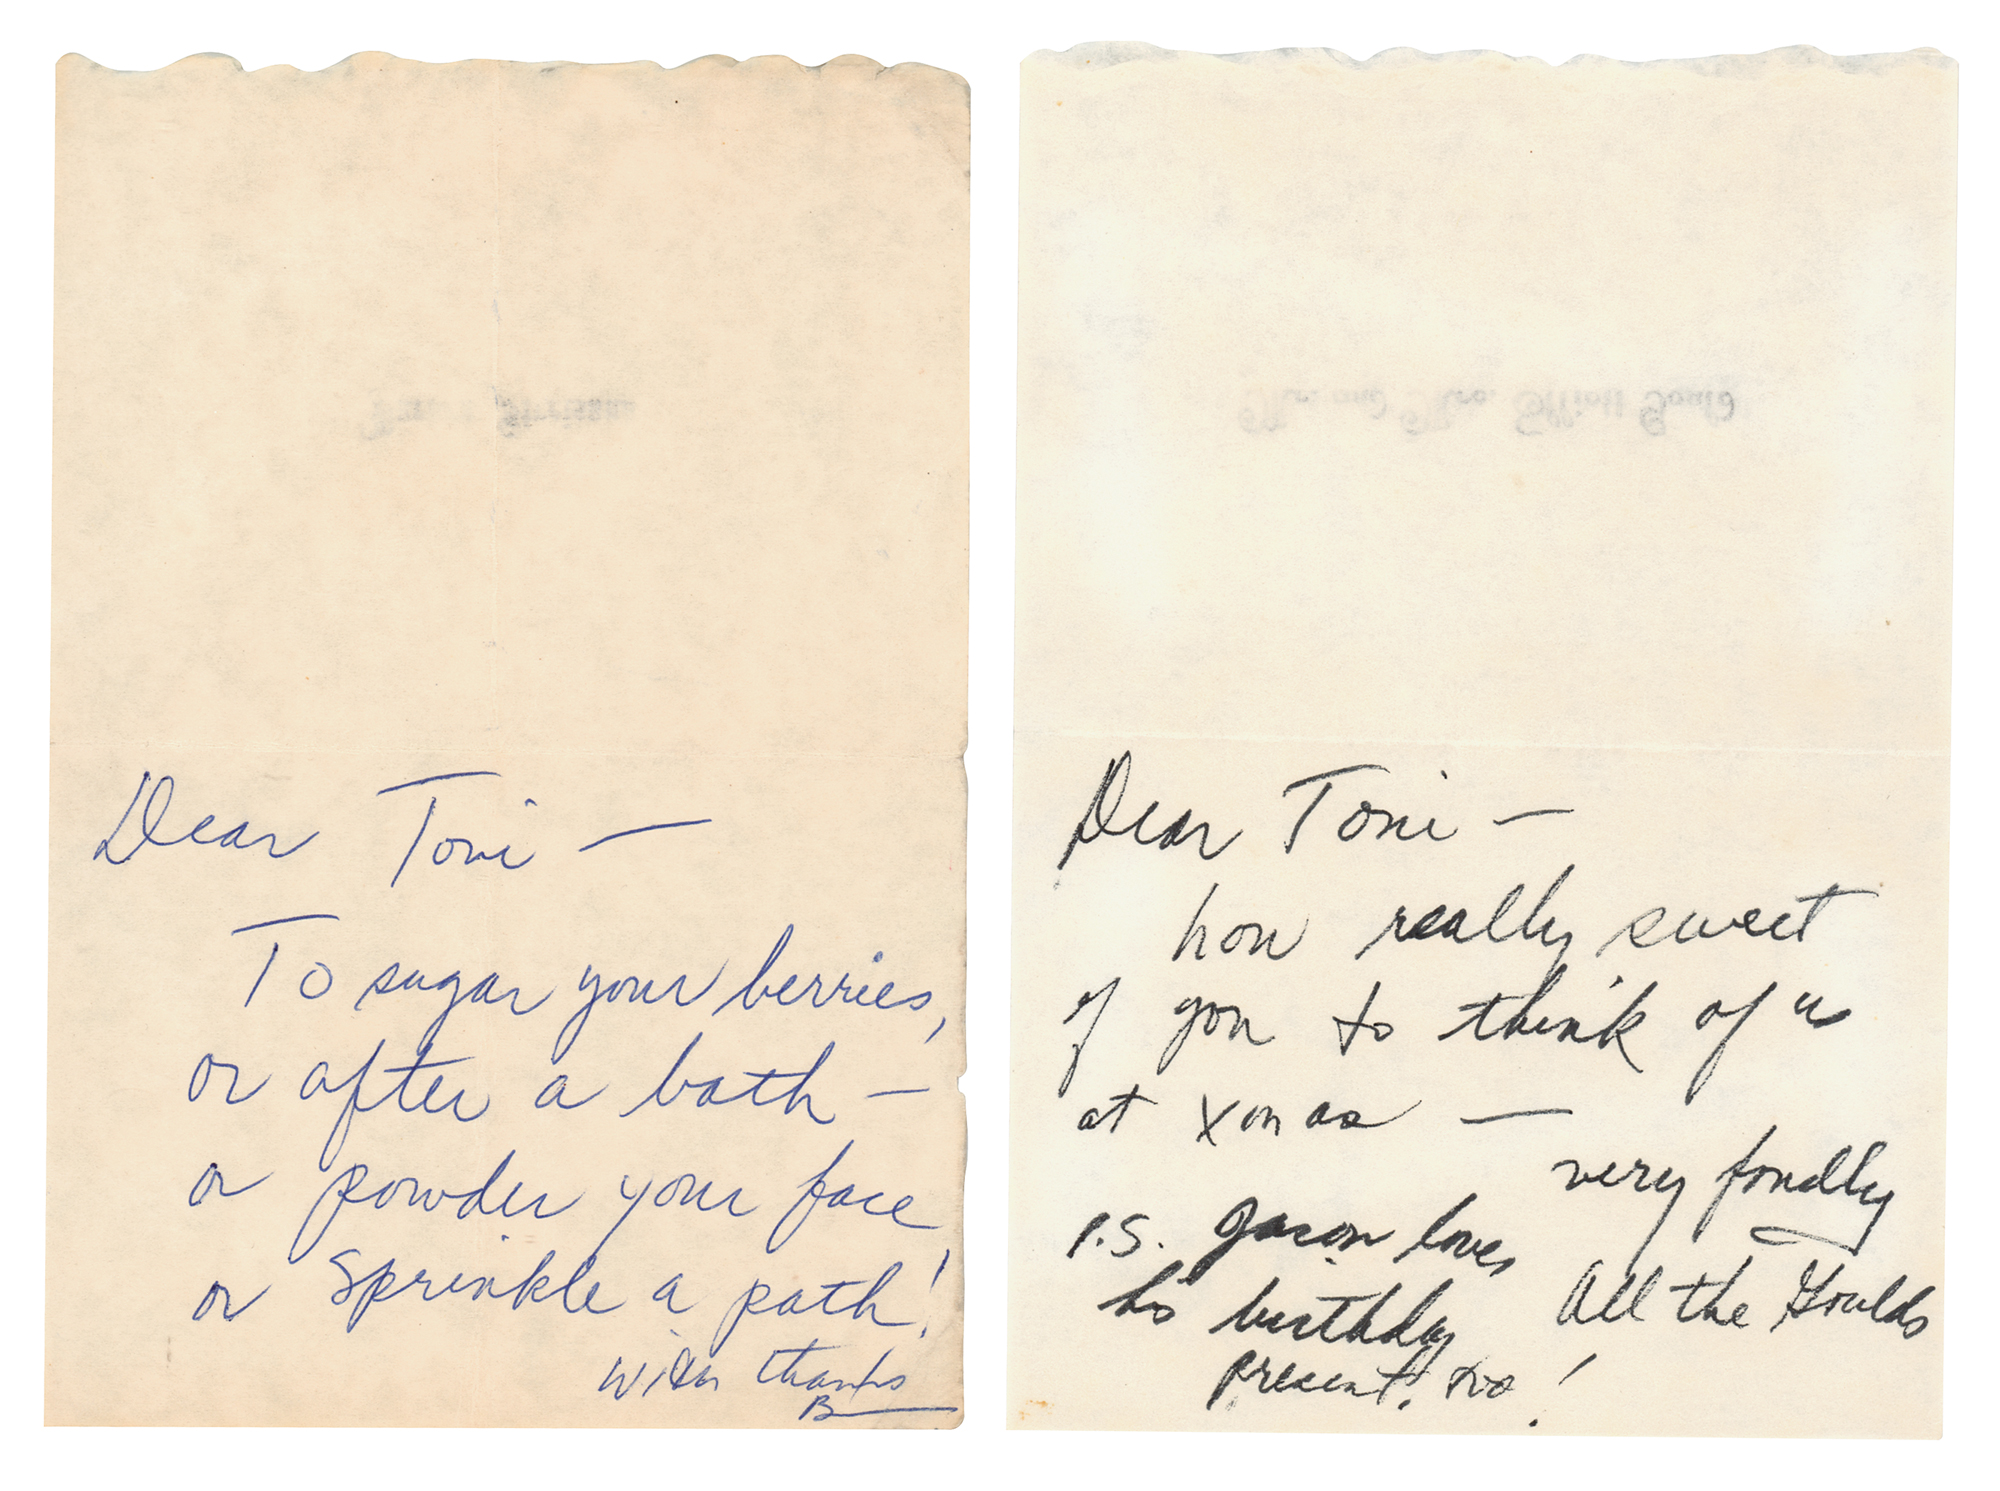 Barbra Streisand
Dear Toni —
To sugar your berries,
or after a bath —
or powder your face
or sprinkle a path!
with thanks
B
Mr. and Mrs. Elliott Gould
Dear Toni —
how really sweet
of you to think of us
at Xmas —
very fondly
All the Goulds
P.S. Jason loves
his birthday
present, too!